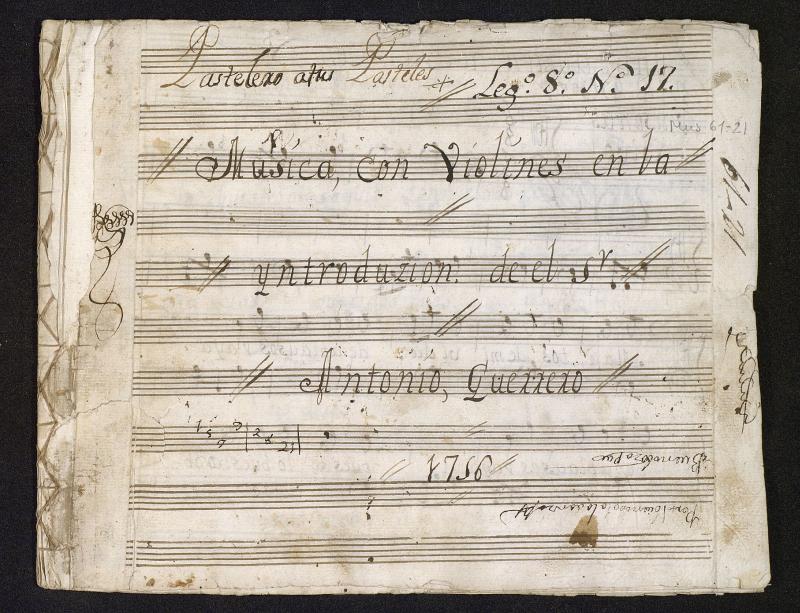 Pastelero atus Pasteles
Leg.º 8.º N.º 17.
Mus 61-21
Musica, con Violines en la
61-21
yntroduzion. de el Sr.
Antonio, Guerrero
1756